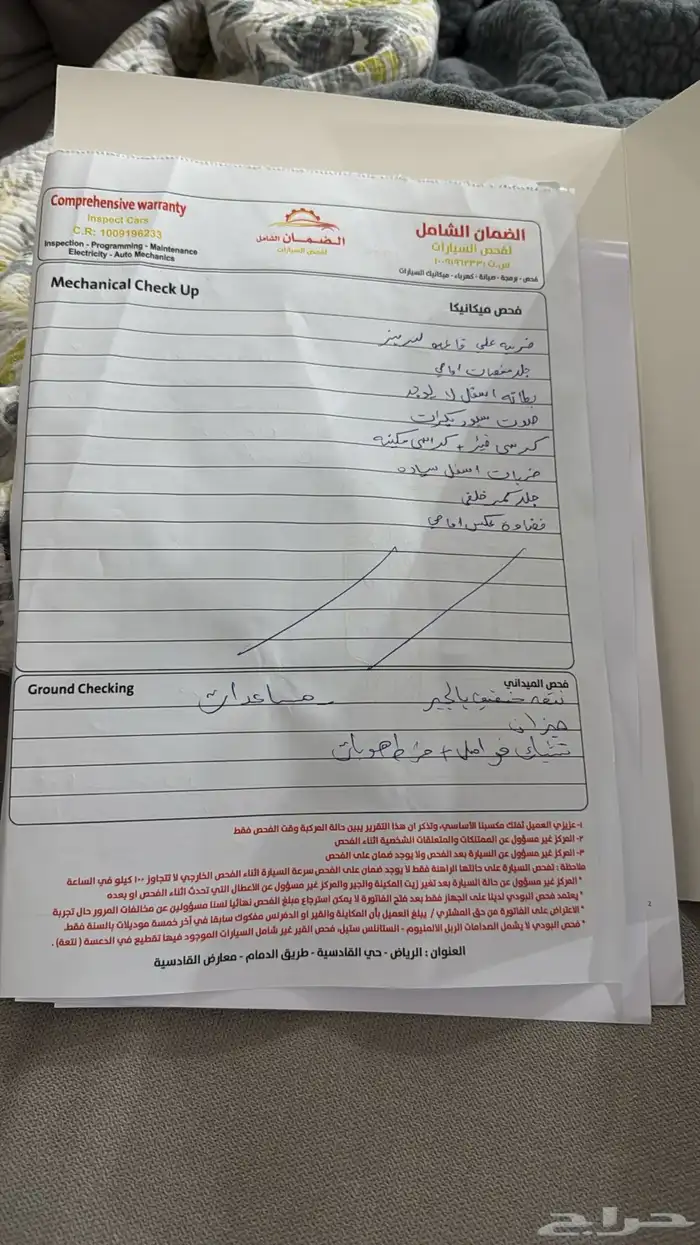 Comprehensive warranty
Inspect Cars
C.R: 1009196233
Inspection - Programming - Maintenance
Electricity - Auto Mechanics
الضمان الشامل
لفحص السيارات
الضمان الشامل
لفحص السيارات
س.ت ١٠٠٩١٩٦٢٣٣
فحص - برمجة - صيانة - كهرباء - ميكانيك السيارات
Mechanical Check Up
فحص ميكانيكا
ضربه علي قاعده
جلد مقصات امامي
بطانه اسفل لا يوجد
صوت سيور بكرات
كرسي قير + كراسي مكينه
ضربات اسفل سياره
جلد كمر خلفي
عكس امامي
Ground Checking
فحص الميداني
نتعه خفيفه بالجير - مساعدات
ميزان
تشيك فوامل + خرط هوبات
١- عزيزي العميل ثقتك مكسبنا الأساسي، وتذكر ان هذا التقرير يبين حالة المركبة وقت الفحص فقط
٢- المركز غير مسؤول عن الممتلكات والمتعلقات الشخصية اثناء الفحص
٣- المركز غير مسؤول عن السيارة بعد الفحص ولا يوجد ضمان على الفحص
ملاحظة : تفحص السيارة على حالتها الراهنة فقط لا يوجد ضمان على الفحص سرعة السيارة اثناء الفحص الخارجي لا تتجاوز ١٠٠ كيلو في الساعة
* المركز غير مسؤول عن حالة السيارة بعد تغير زيت المكينة والجير والمركز غير مسؤول عن الاعطال التي تحدث اثناء الفحص او بعده
* يعتمد فحص البودي لدينا على الجهاز فقط بعد فتح الفاتورة لا يمكن استرجاع مبلغ الفحص نهائيا لسنا مسؤولين عن مخالفات المرور حال تجربة
* الاعتراض على الفاتورة من حق المشتري / يبلغ العميل بأن المكاينة والقير او الدفرنس مفكوك سابقا في آخر خمسة موديلات بالسنة فقط.
* فحص البودي لا يشمل الصدامات الربل الالمنيوم - الستانلس ستيل، فحص القير غير شامل السيارات الموجود فيها تقطيع في الدعسة ( نتعة ) .
العنوان : الرياض - حي القادسية - طريق الدمام - معارض القادسية
2
حراج